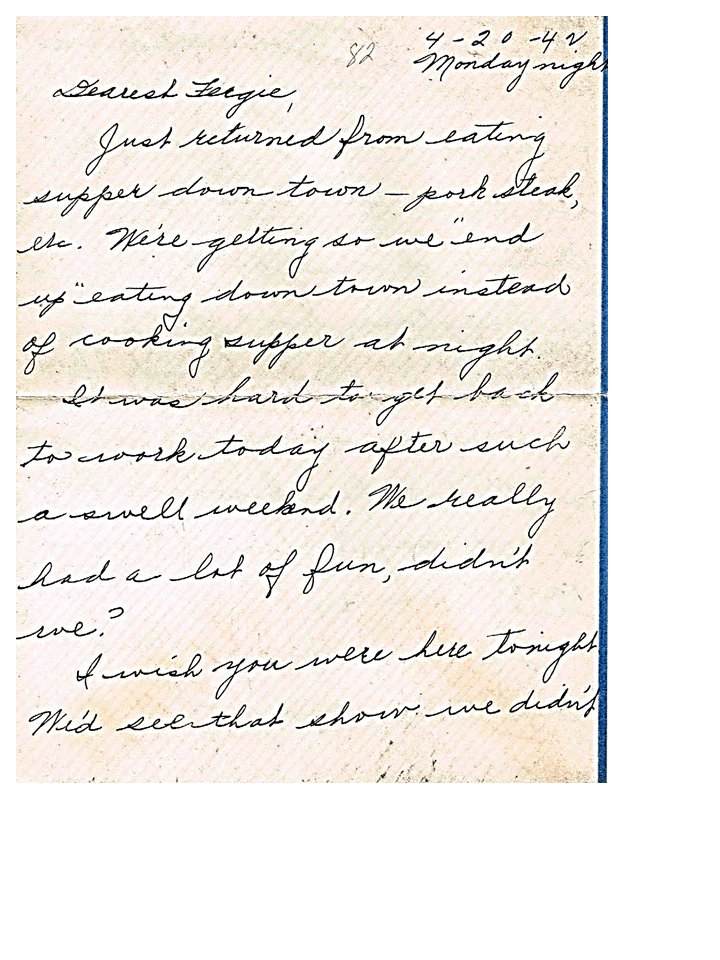 4-20-42
82
Monday night
Dearest Fergie,
Just returned from eating
supper down town – pork steak,
etc. We're getting so we "end
up" eating down town instead
of cooking supper at night.
It was hard to get back
to work today after such
a swell weekend. We really
had a lot of fun, didn't
we?
I wish you were here tonight
We'd see that show we didn't